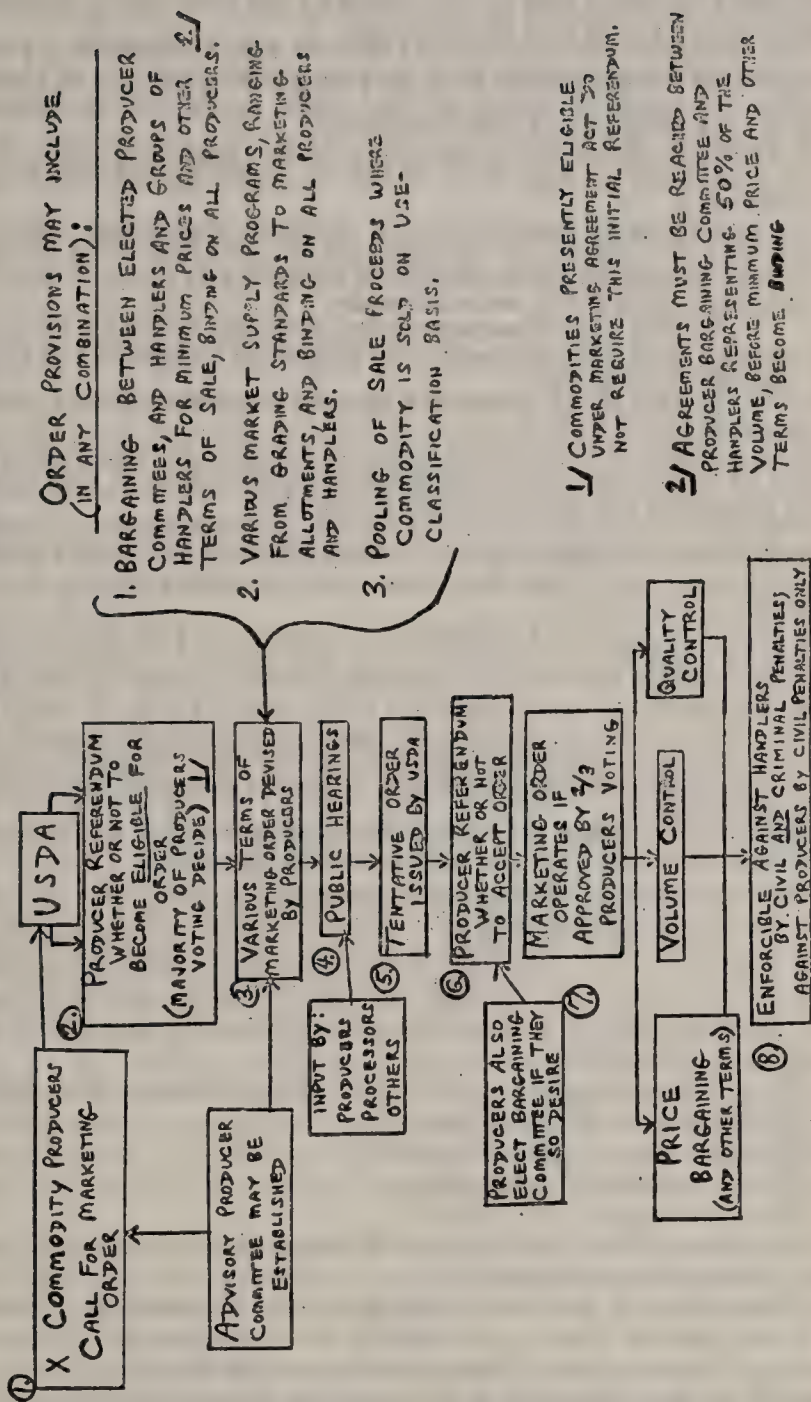 ①.
X COMMODITY PRODUCERS
CALL FOR MARKETING
ORDER
USDA
②.
PRODUCER REFERENDUM
WHETHER OR NOT TO
BECOME ELIGIBLE FOR
ORDER
(MAJORITY OF PRODUCERS
VOTING DECIDE) 1/
ADVISORY PRODUCER
COMMITTEE MAY BE
ESTABLISHED
③.
VARIOUS TERMS OF
MARKETING ORDER DEVISED
BY PRODUCERS
④.
PUBLIC HEARINGS
INPUT BY:
PRODUCERS
PROCESSORS
OTHERS
⑤.
TENTATIVE ORDER
ISSUED BY USDA
⑥.
PRODUCER REFERENDUM
WHETHER OR NOT
TO ACCEPT ORDER
PRODUCERS ALSO
ELECT BARGAINING
COMMITTEE IF THEY
SO DESIRE
⑦.
MARKETING ORDER
OPERATES IF
APPROVED BY 2/3
PRODUCERS VOTING
PRICE
BARGAINING
(AND OTHER TERMS)
VOLUME CONTROL
QUALITY
CONTROL
⑧.
ENFORCIBLE AGAINST HANDLERS
BY CIVIL AND CRIMINAL PENALTIES;
AGAINST PRODUCERS BY CIVIL PENALTIES ONLY
ORDER PROVISIONS MAY INCLUDE
(IN ANY COMBINATION):
1. BARGAINING BETWEEN ELECTED PRODUCER
COMMITTEES, AND HANDLERS AND GROUPS OF
HANDLERS FOR MINIMUM PRICES AND OTHER 2/
TERMS OF SALE, BINDING ON ALL PRODUCERS.
2. VARIOUS MARKET SUPPLY PROGRAMS, RANGING
FROM GRADING STANDARDS TO MARKETING
ALLOTMENTS, AND BINDING ON ALL PRODUCERS
AND HANDLERS.
3. POOLING OF SALE PROCEEDS WHERE
COMMODITY IS SOLD ON USE-
CLASSIFICATION BASIS.
1/ COMMODITIES PRESENTLY ELIGIBLE
UNDER MARKETING AGREEMENT ACT DO
NOT REQUIRE THIS INITIAL REFERENDUM.
2/ AGREEMENTS MUST BE REACHED BETWEEN
PRODUCER BARGAINING COMMITTEE AND
HANDLERS REPRESENTING 50% OF THE
VOLUME, BEFORE MINIMUM PRICE AND OTHER
TERMS BECOME BINDING